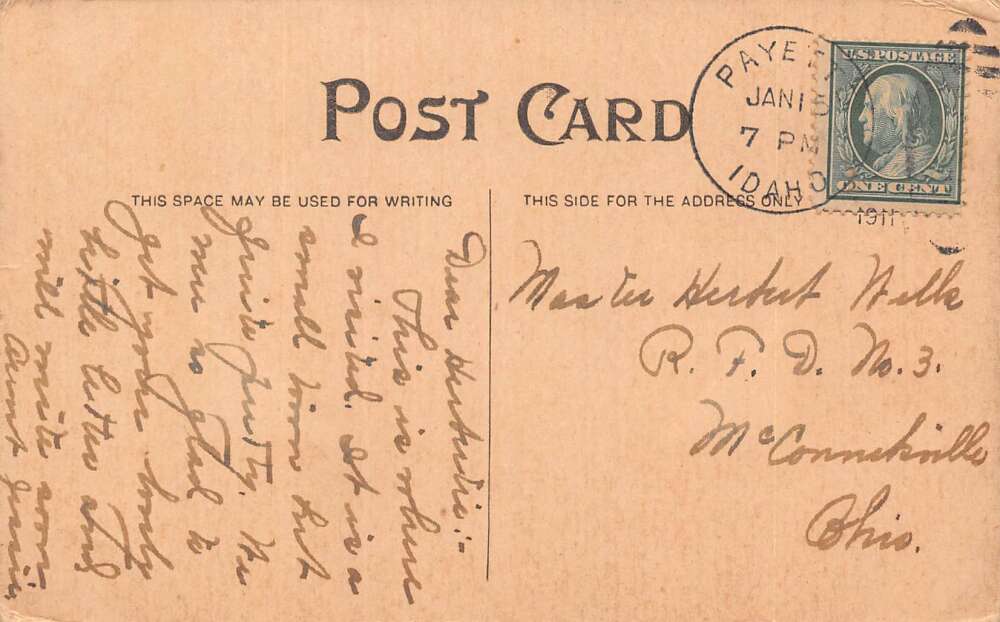 POST CARD
THIS SPACE MAY BE USED FOR WRITING
THIS SIDE FOR THE ADDRESS ONLY
PAYE
JAN 18
7 PM
IDAHO
1911
U.S. POSTAGE
ONE CENT
Dear Herbert:-
This is where
I visited. It is a
small town but
quite pretty. We
were so glad to
get your lovely
little letter and
will write soon
Aunt Jessie
Master Herbert Wells
R. F. D. No. 3.
McConnelsville
Ohio.